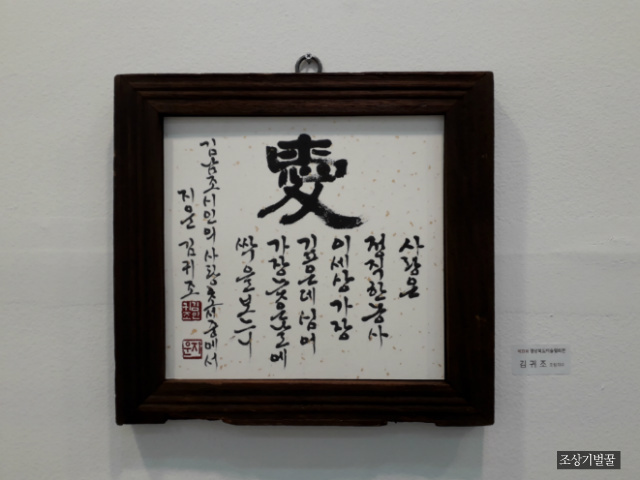 愛
사랑은
정직한농사
이세상가장
깊은데심어
가장늦은날에
싹을본느니
김남조시인의 사랑초서중에서
지운 김귀조
김귀조
조상기벌꿀